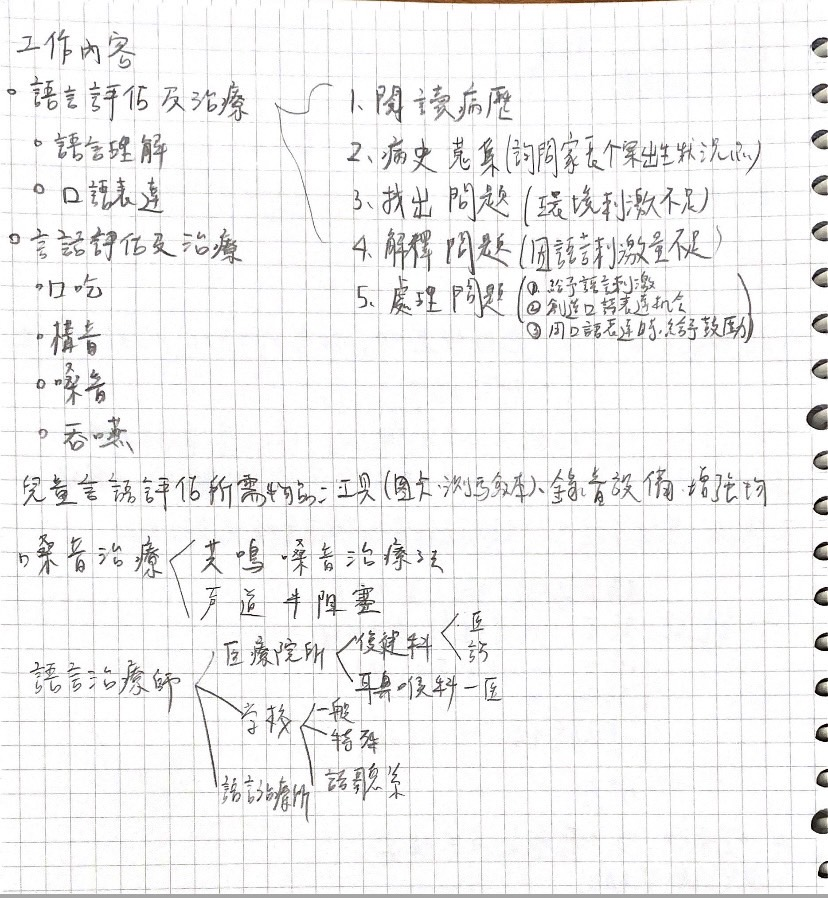 工作內容
語言評估及治療
語言理解
口語表達
言語評估及治療
口吃
構音
嗓音
吞嚥
1、閱讀病歷
2、病史蒐集(詢問家長个案出生狀況…)
3、找出問題(環境刺激不足)
4、解釋問題(因語言刺激量不足)
5、處理問題(
①給予語言刺激
②創造口語表達机会
③用口語表達時,給予鼓勵)
兒童言語評估所需物品:工具(圖卡、測写教本)、錄音設備、增強物
嗓音治療
共鳴嗓音治療法
声道半阻塞
語言治療師
医療院所
復健科
医
訪
耳鼻喉科一医
学校
一般
特殊
語聽系
語言治療所